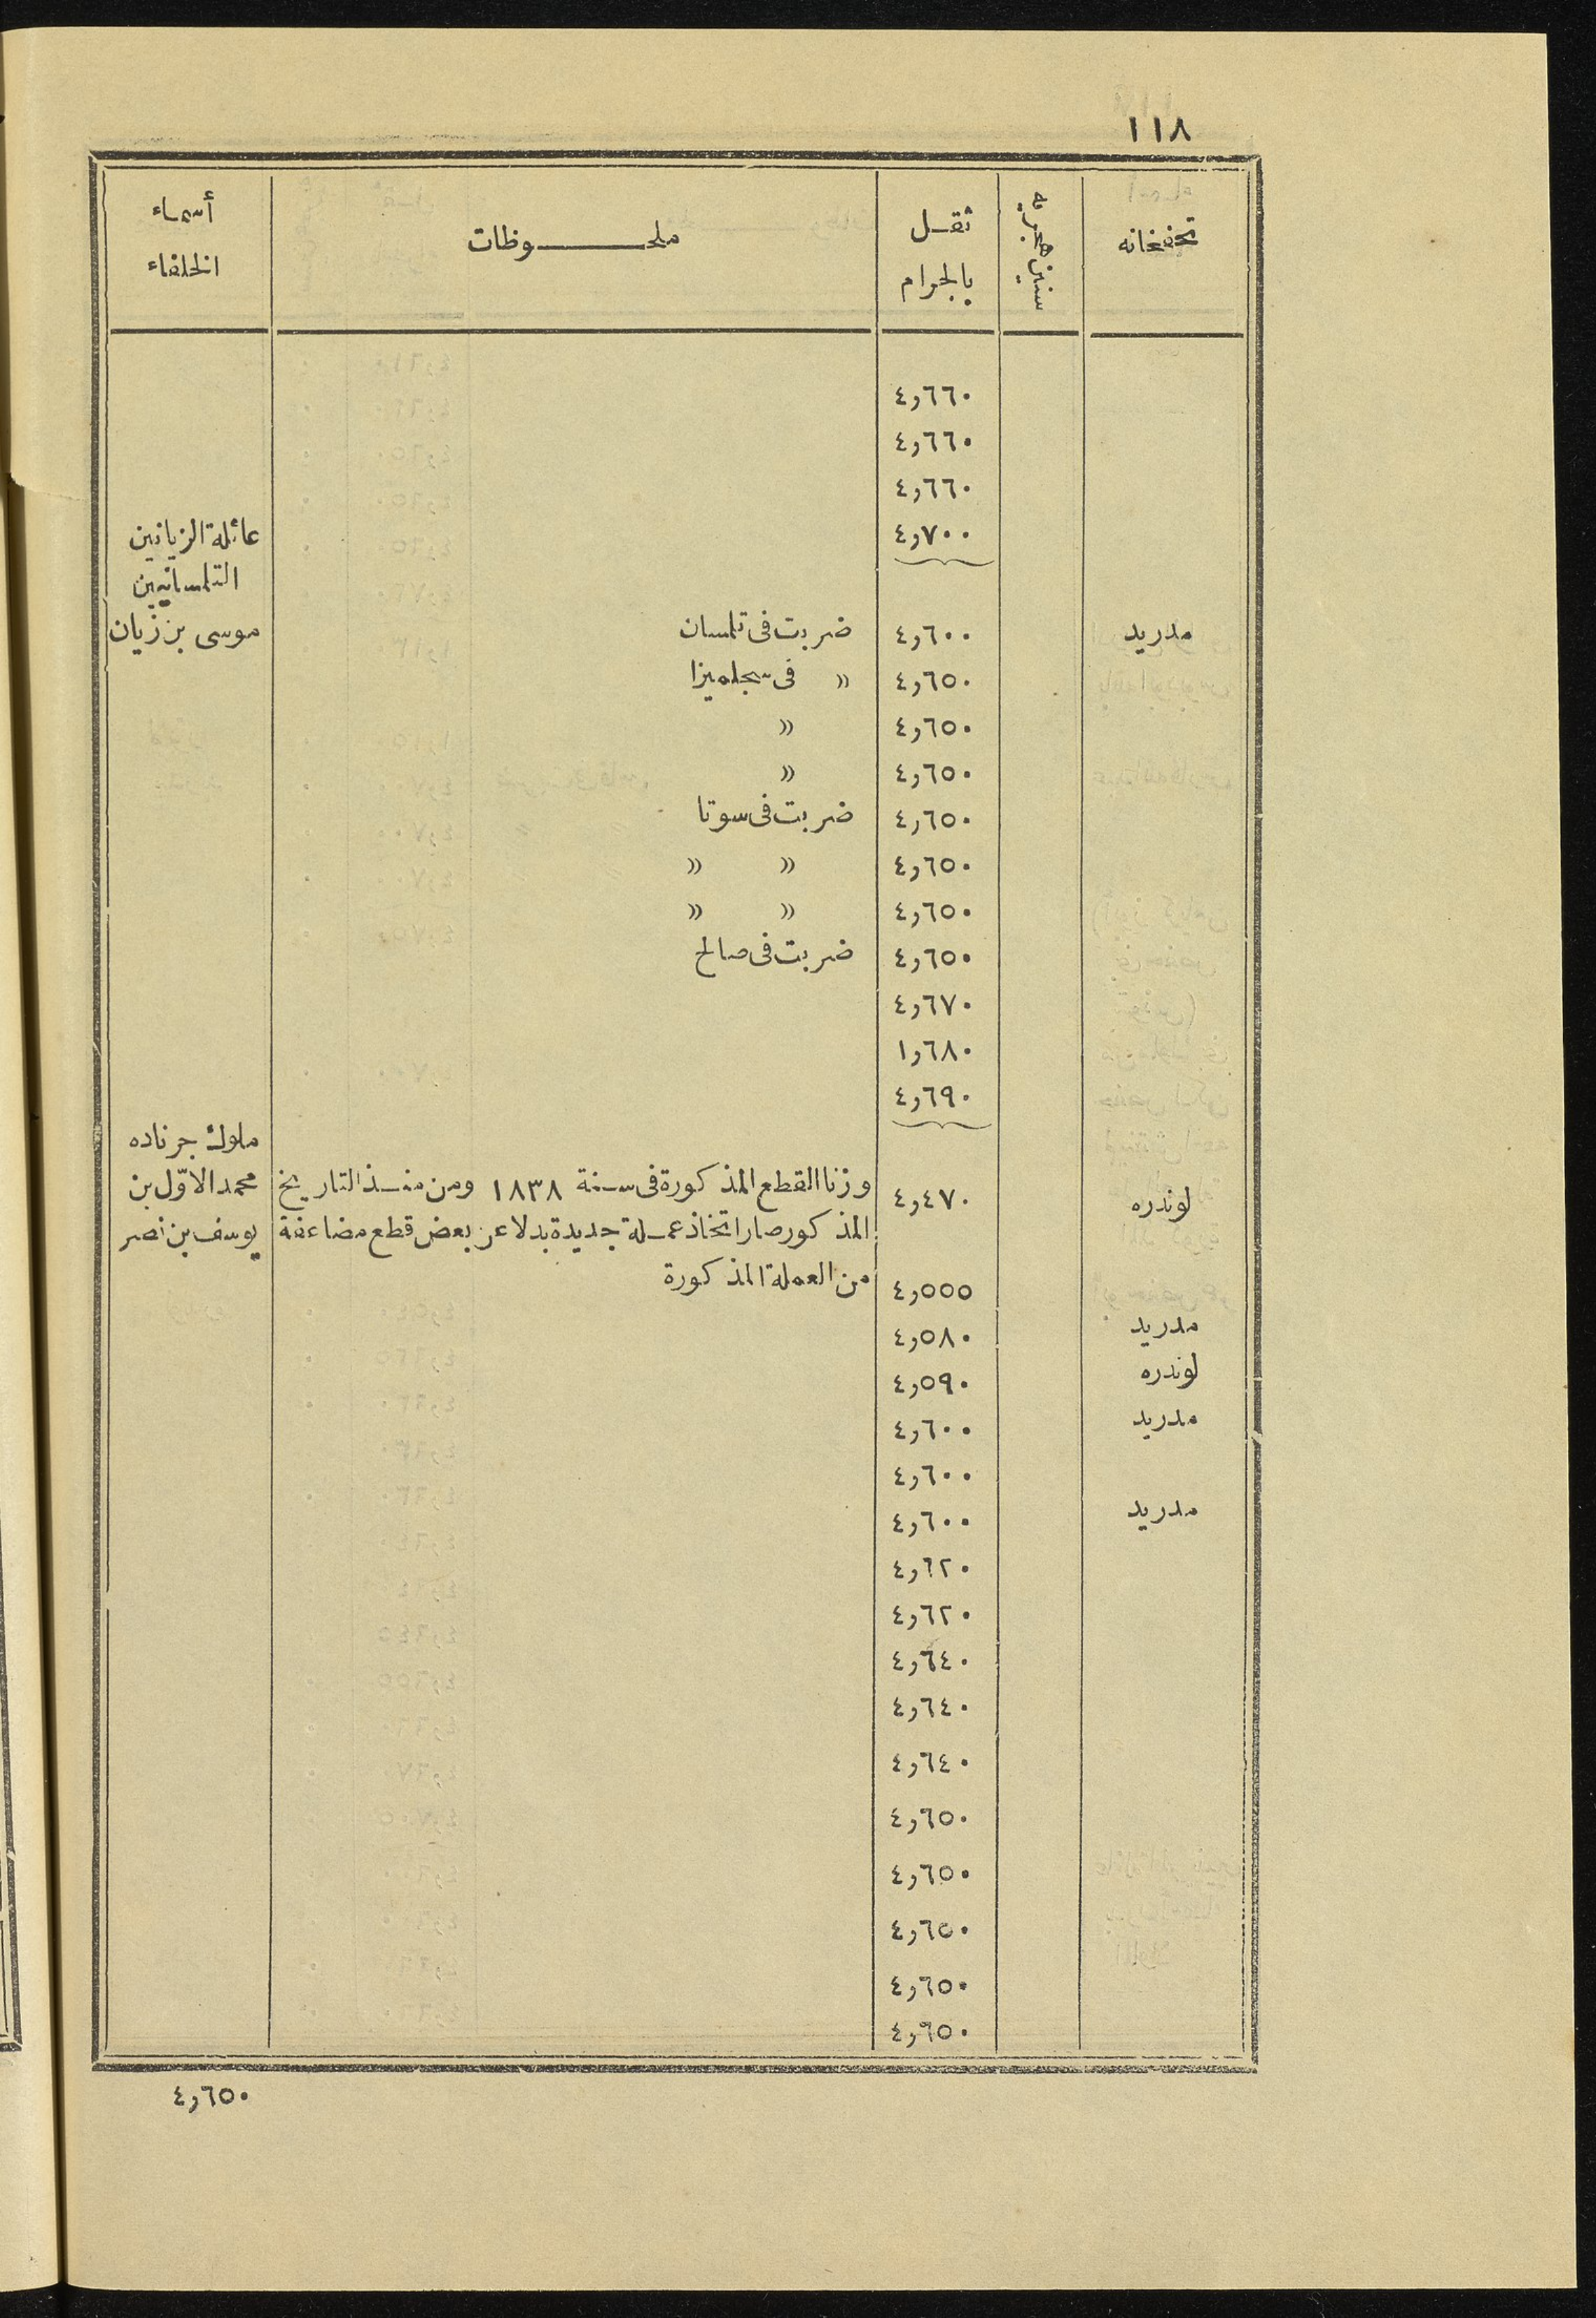 ١١٨
تحفخانه | سنين هجريه | ثقل بالجرام | ملحوظات | أسماء الخلفاء
٤,٦٦٠
٤,٦٦٠
٤,٦٦٠
٤,٧٠٠
عائلة الزيانين
التلمسانيين
مدريد | ٤,٦٠٠ | ضربت فى تلمسان | موسى بن زيان
٤,٦٥٠ | » فى سجلميزا
٤,٦٥٠ | »
٤,٦٥٠ | »
٤,٦٥٠ | ضربت فى سوتا
٤,٦٥٠ | » »
٤,٦٥٠ | » »
٤,٦٥٠ | ضربت فى صالح
٤,٦٧٠
١,٦٨٠
٤,٦٩٠
ملوك جرناده
لوندره | ٤,٤٧٠ | وزنا القطع المذكورة فى سنة ١٨٣٨ ومن منذ التاريخ | محمد الاوّل بن
المذكور صار اتخاذ عملة جديدة بدلا عن بعض قطع مضاعفة | يوسف بن نصر
٤,٥٥٥ | من العملة المذكورة
مدريد | ٤,٥٨٠
لوندره | ٤,٥٩٠
مدريد | ٤,٦٠٠
٤,٦٠٠
مدريد | ٤,٦٠٠
٤,٦٢٠
٤,٦٢٠
٤,٦٤٠
٤,٦٤٠
٤,٦٤٠
٤,٦٥٠
٤,٦٥٠
٤,٦٥٠
٤,٦٥٠
٤,٦٥٠
٤,٦٥٠